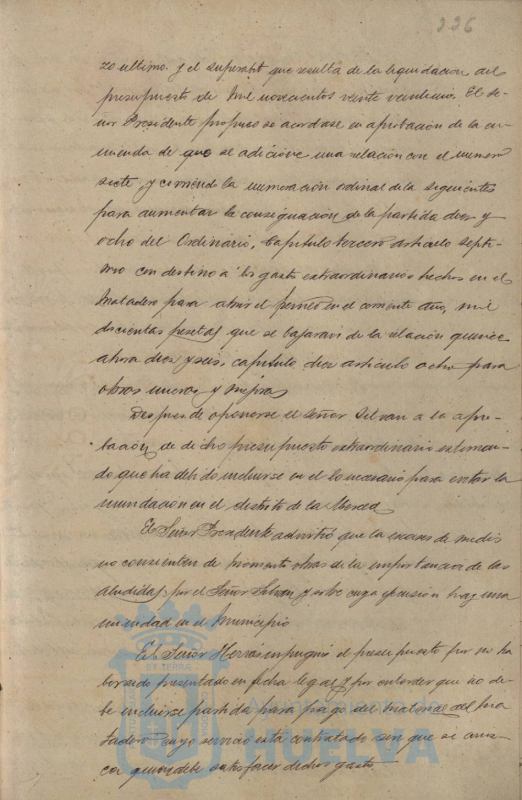 226
zo ultimo y el superabit que resulta de la liquidacion del
presupuesto de mil novecientos veinte veintiuno. El Se-
ñor Presidente propuso se acordase en aprobación de la en-
mienda de que se adicione una relación con el numero
siete, y corriendo la numeración ordinal de la siguientes
para aumentar la consignación de la partida diez y
ocho del Ordinario, Capitulo tercero articulo septi-
mo con destino a los gastos extraordinarios hechos en el
Matadero para abrir el en el corriente año, mil
doscientas pesetas que se bajaran de la relación quince
ahora diez y seis, capitulo diez articulo ocho para
obras nuevas y mejoras
Despues de oponerse el Señor Silvan a la apro-
bación de dicho presupuesto extraordinario estiman-
do que ha debido incluirse en el lo necesario para evitar la
inundación en el distrito de la Merced
El Señor Presidente advirtió que la escasez de medios
no consienten de momento obras de la importancia de las
aludidas por el Señor Silvan y sobre cuya ejecusión hay una
unidad en el Municipio
El Señor Herras impugnó el presupuesto por no ha
berse presentado en fecha legal y por entender que no de-
be incluirse partida para pago del material del Ma
tadero cuyo servicio está contratado sin que se conoz-
ca quien debe satisfacer dichos gastos,
HUELVA